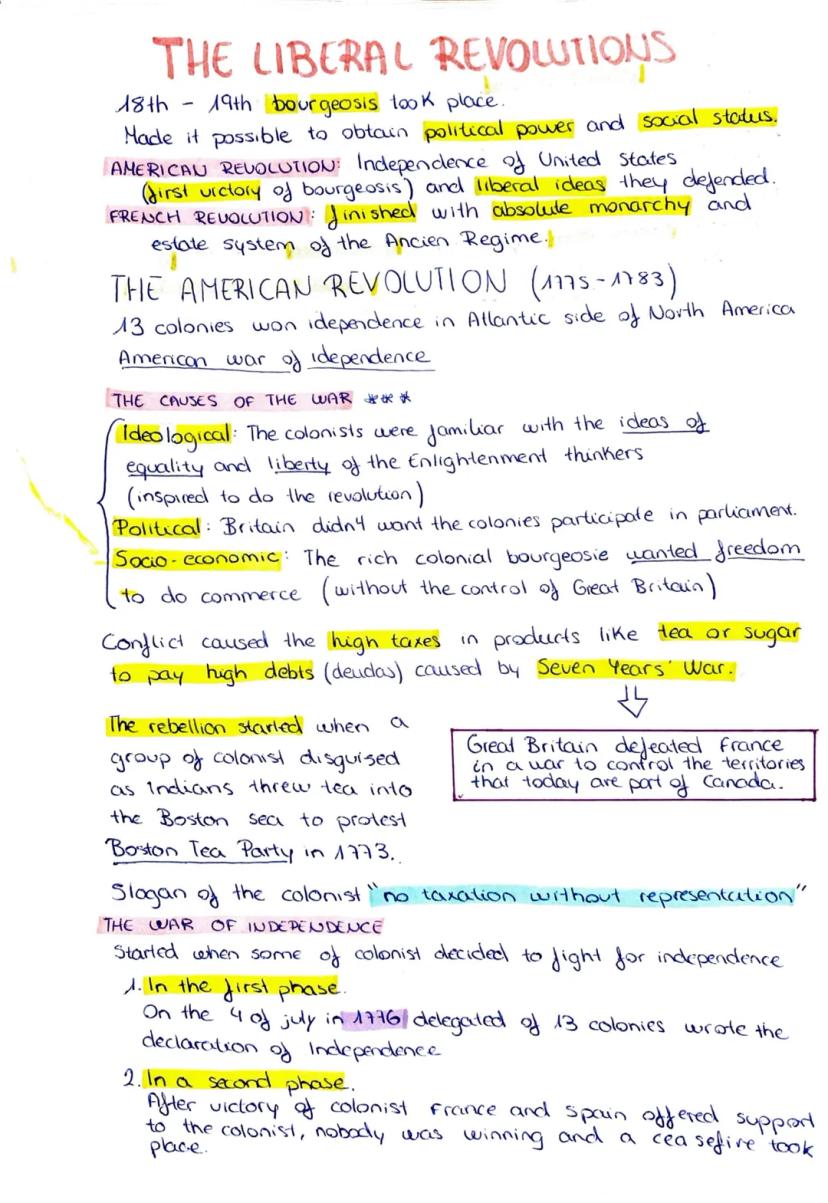 THE LIBERAL REVOLUTIONS
18th - 19th bourgeosis took place.
Made it possible to obtain political power and social status.
AMERICAN REVOLUTION: Independence of United States
(first victory of bourgeosis) and liberal ideas they defended.
FRENCH REVOLUTION: finished with absolute monarchy and
estate system of the Ancien Regime.
THE AMERICAN REVOLUTION (1775-1783)
13 colonies won idependence in Atlantic side of North America
American war of idependence
THE CAUSES OF THE WAR ***
Ideological: The colonists were familiar with the ideas of
equality and liberty of the Enlightenment thinkers
(inspired to do the revolution)
Political: Britain didn4 want the colonies participate in parliament.
Socio-economic: The rich colonial bourgeosie wanted freedom
to do commerce (without the control of Great Britain)
Conflict caused the high taxes in products like tea or sugar
to pay high debts (deudas) caused by Seven Years' War.
The rebellion started when a
group of colonist disguised
as Indians threw tea into
the Boston sea to protest
Boston Tea Party in 1773.
Great Britain defeated France
in a war to control the territories
that today are part of Canada.
Slogan of the colonist "no taxation without representation"
THE WAR OF INDEPENDENCE
Started when some of colonist decided to fight for independence
1. In the first phase.
On the 4 of july in 1776 delegated of 13 colonies wrote the
declaration of Independence
2. In a second phase.
After victory of colonist France and Spain offered support
to the colonist, nobody was winning and a ceasefire took
place.